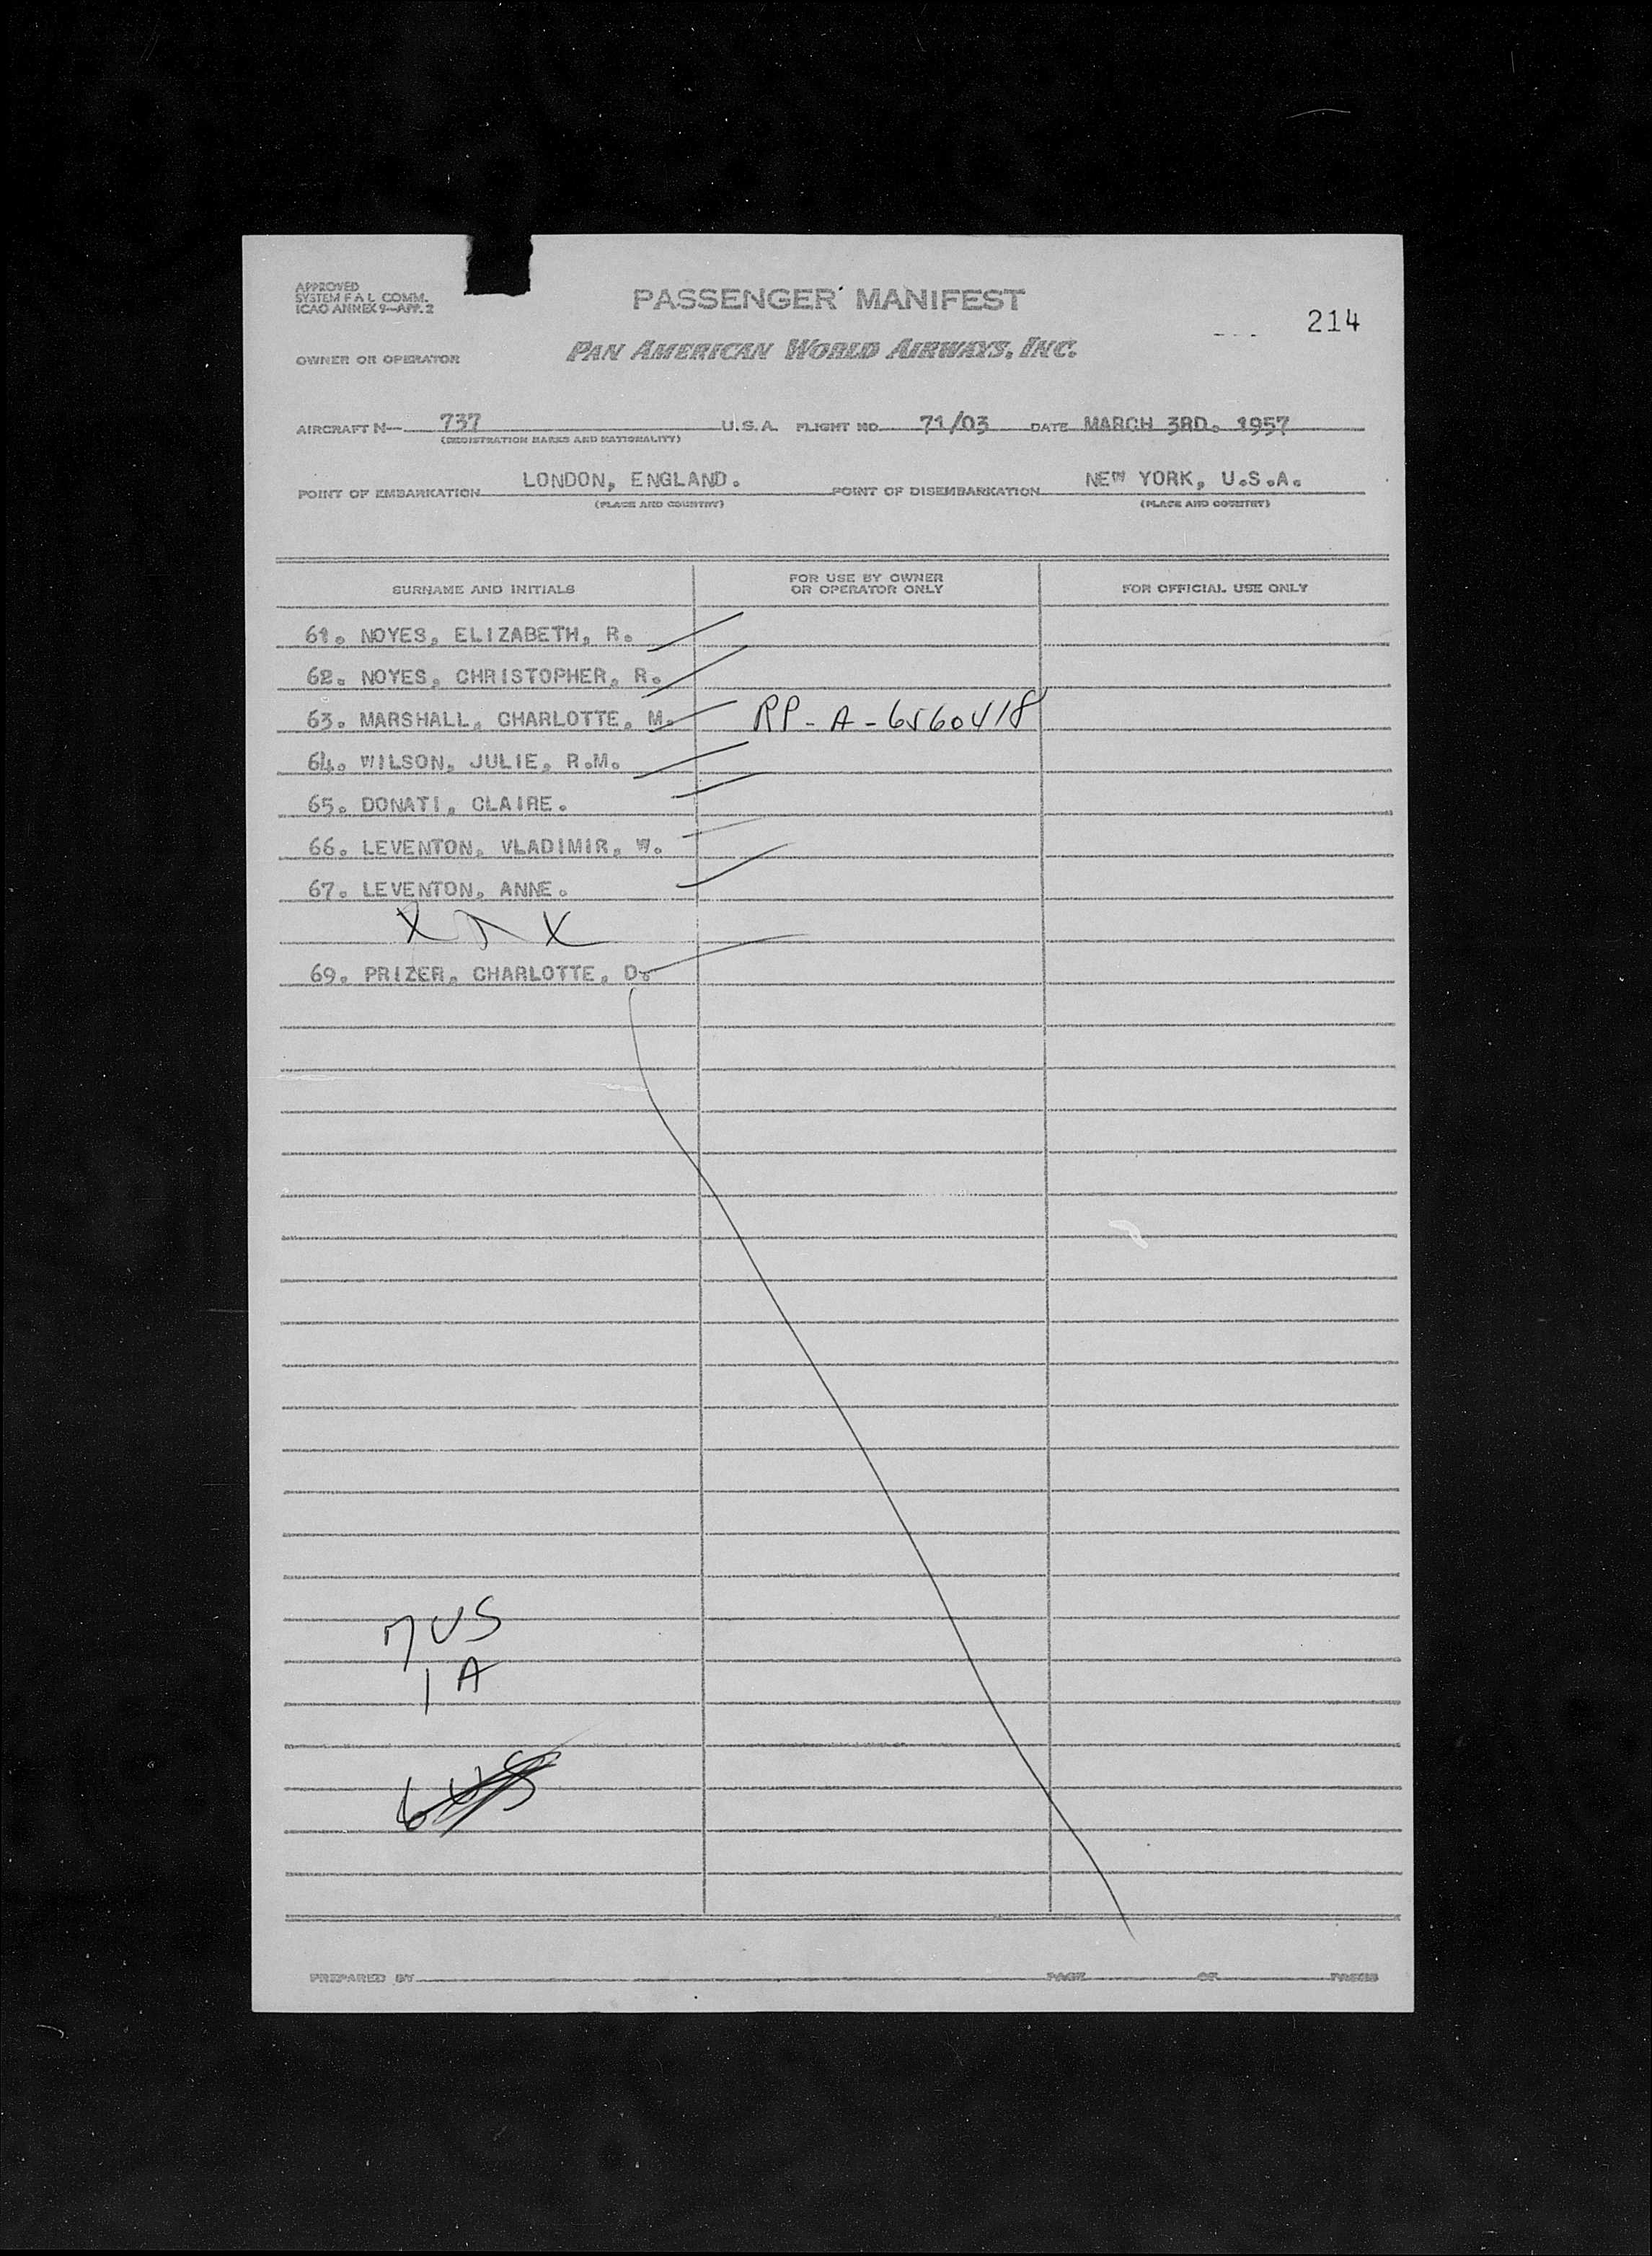 APPROVED
SYSTEM F A L COMM.
ICAO ANNEX 9—APP. 2
PASSENGER MANIFEST
214
OWNER OR OPERATOR
PAN AMERICAN WORLD AIRWAYS, INC.
AIRCRAFT N— 737 U.S.A. FLIGHT NO. 71/03 DATE MARCH 3RD. 1957
(REGISTRATION MARKS AND NATIONALITY)
POINT OF EMBARKATION LONDON, ENGLAND. POINT OF DISEMBARKATION NEW YORK, U.S.A.
(PLACE AND COUNTRY) (PLACE AND COUNTRY)
SURNAME AND INITIALS FOR USE BY OWNER OR OPERATOR ONLY FOR OFFICIAL USE ONLY
61. NOYES, ELIZABETH, R.
62. NOYES, CHRISTOPHER, R.
63. MARSHALL, CHARLOTTE, M. RP - A - 6560418
64. WILSON, JULIE, R.M.
65. DONATI, CLAIRE.
66. LEVENTON, VLADIMIR, W.
67. LEVENTON, ANNE.
X X X
69. PRIZER, CHARLOTTE, D.
7 US
1 A
6 US
PREPARED BY PAGE OF PAGES